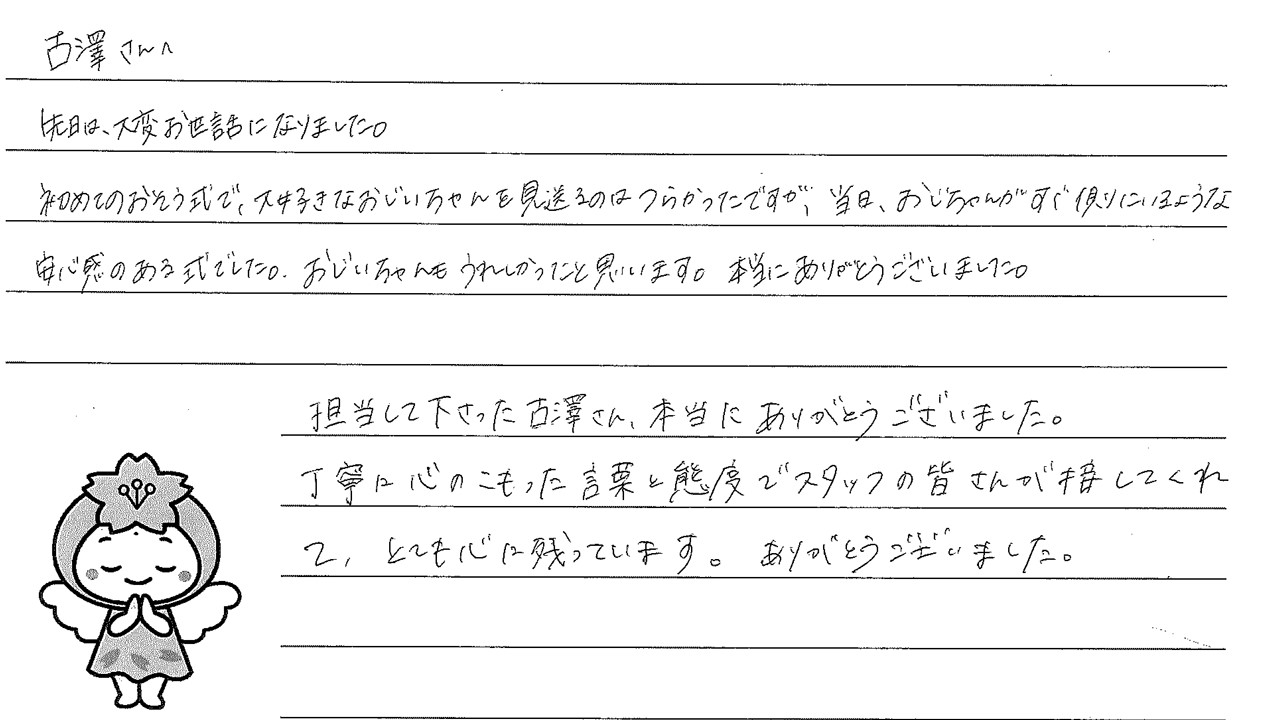 古澤さんへ
先日は、大変お世話になりました。
初めてのおそう式で、大好きなおじいちゃんを見送るのはつらかったですが、当日、おじちゃんがすぐ側りにいるような
安心感のある式でした。おじいちゃんもうれしかったと思いいます。本当にありがとうございました。
担当して下さった古澤さん、本当にありがとうございました。
丁寧に心のこもった言葉と態度でスタッフの皆さんが接してくれ
て、とても心に残っています。ありがとうございました。